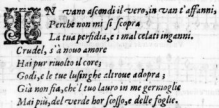 IN vano ascondi il vero, in van t'affanni,
Perche non mi si scopra
La tua perfidia, e i mal celati inganni.
Crudel, s'à nouo amore
Hai pur riuolto il core;
Godi, e le tue lusinghe altroue adopra;
Già non fia, che'l tuo lauro in me germoglie
Mai più, del verde hor scosso, e delle foglie.